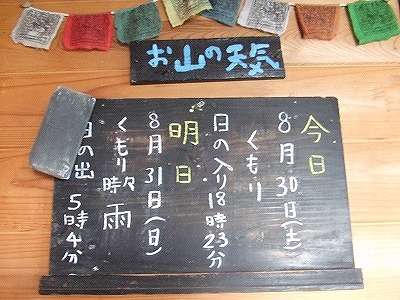 お山の天気
今日
8月30日(土)
くもり
日の入り18時23分
明日
8月31日(日)
くもり時々雨
日の出 5時4分